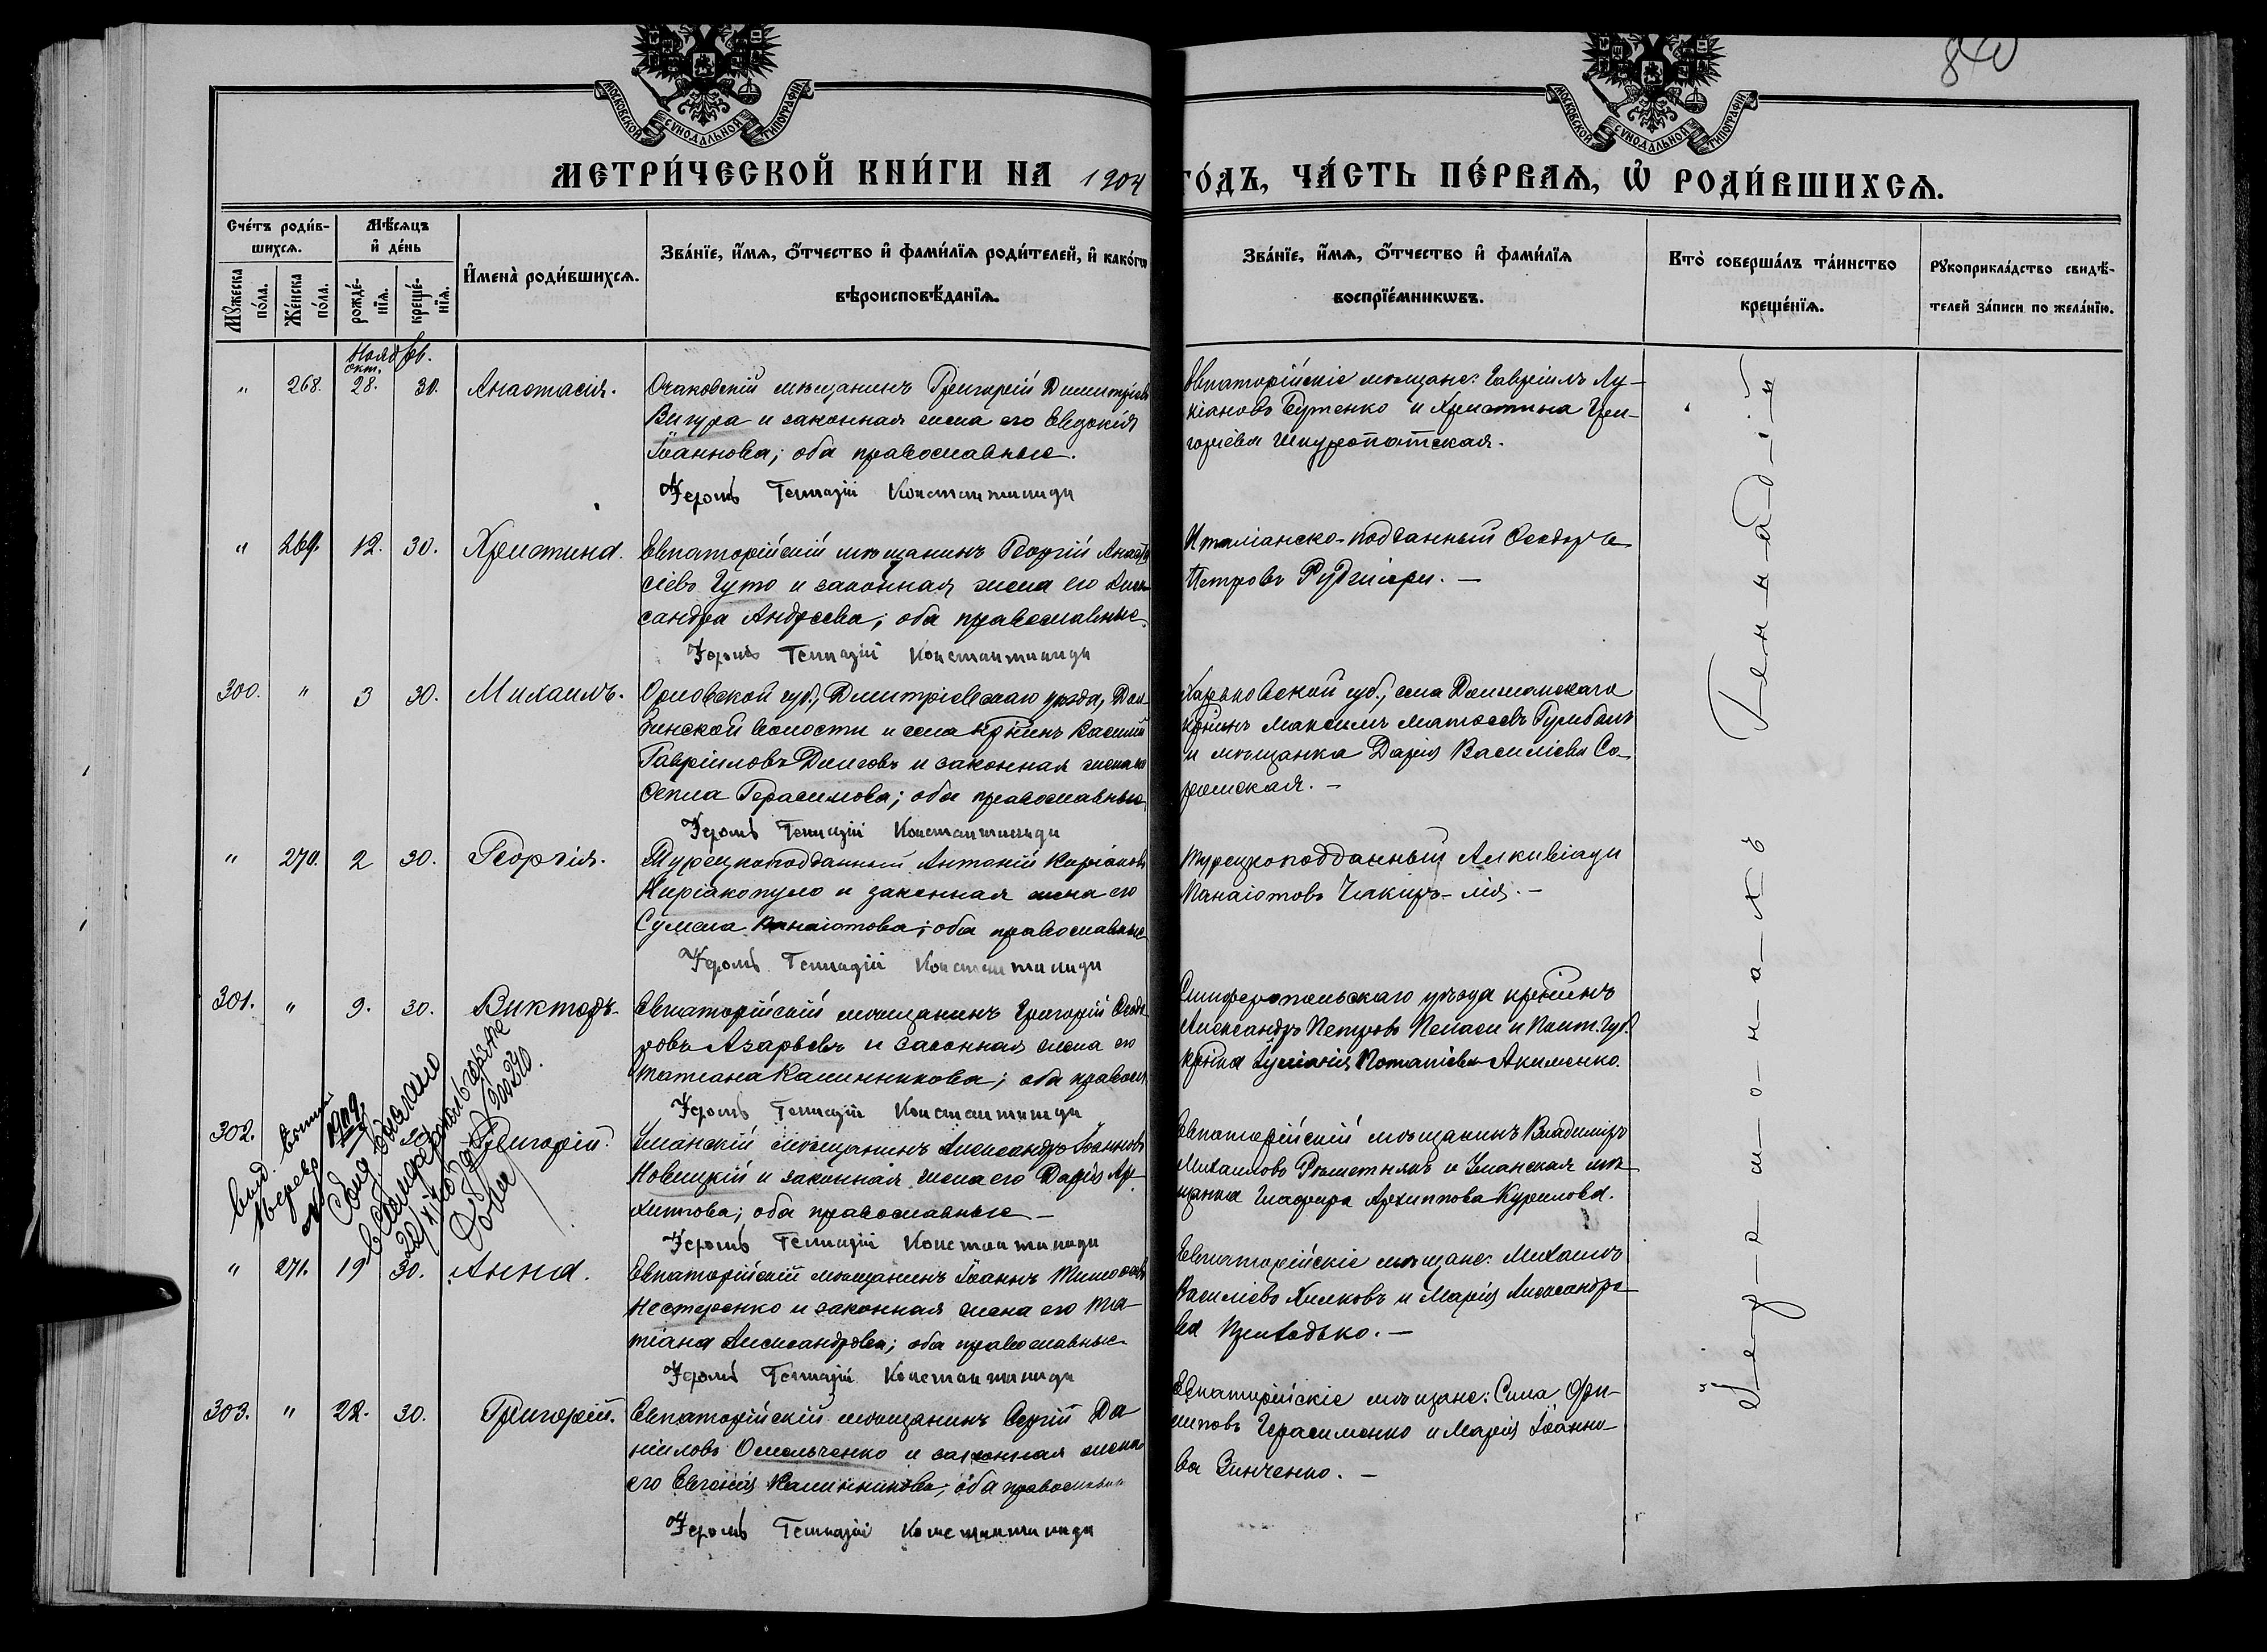 840
МОСКОВСКОЙ СѴНОДАЛЬНОЙ ТИПОГРАФІИ
МОСКОВСКОЙ СѴНОДАЛЬНОЙ ТИПОГРАФІИ
МЕТРИ́ЧЕСКОЙ КНИ́ГИ НА 1904 ГО́ДЪ, ЧА́СТЬ ПЕ́РВАѦ, Ѡ РОДИ́ВШИХСѦ.
Сче́тъ роди́в-
шихсѧ.
Мꙋ́жеска по́ла.
Же́нска по́ла.
Мѣ́сѧцъ
и҆ де́нь
рожде́-
нїѧ.
креще́-
нїѧ.
И҆мена̀ роди́вшихсѧ.
Зва́нїе, и҆́мѧ, ѻ҆́тчество и҆ фами́лїѧ роди́телей, и҆ како́гѡ
вѣроисповѣ́данїѧ.
Зва́нїе, и҆́мѧ, ѻ҆́тчество и҆ фами́лїѧ
воспрїе́мникѡвъ.
Кто̀ соверша́лъ та́инство
креще́нїѧ.
Рꙋкоприкла́дство свидѣ́-
телей за́писи по жела́нїю.
Нояб
окт.
" 268. 28. 30. Анастасія.
Очаковскій мѣщанинъ Григорій Димитріевъ
Вигура и законная жена его Евдокія
Іоаннова; оба православные.
Іеромъ Геннадій Константиниди
Евпаторійскіе мѣщане: Гавріилъ Лу-
кіановъ Бутенко и Христина Гри-
горіева Шкуропатская.
" 269. 12. 30. Христина.
Евпаторійскій мѣщанинъ Георгій Анаста
сіевъ Гуто и законная жена его Алек-
сандра Андреева; оба православные.
Іеромъ Геннадій Константиниди
Италіанско-подданный Ѳеодоръ
Петровъ Руджіери. —
300. " 3 30. Михаилъ.
Орловской губ., Дмитріевскаго уѣзда,
волости и села кр̃нинъ Василій
Гавріиловъ и законная жена его
Герасимова; оба православные
Іеромъ Геннадій Константиниди
Харьковской губ., села
кр̃нинъ Максимъ Матѳеевъ
и мѣщанка Дарія Василіева Со-
ромская. —
" 270. 2 30. Георгія.
Турецкоподданный Антоній Киріаковъ
Киріакопуло и законная жена его
Сумела Панаіотова; оба православные
Іеромъ Геннадій Константиниди
Турецкоподданный Алкивіади
Панаіотовъ Чакиръ-
301. " 9. 30. Викторъ.
Евпаторійскій мѣщанинъ Григорій Ѳеодо
ровъ Азарьевъ и законная жена его
Татіана Калинникова; оба правосл
Іеромъ Геннадій Константиниди
Симферопольскаго уѣзда кр̃нинъ
Александръ Петровъ и Полт. губ.
кр̃нка Іуліанія Потапіева Акименко.
302. Григорій.
Уманскій мѣщанинъ Александръ Іоанновъ
Новицкій и законная жена его Дарія Ар
хиппова; оба православные —
Іеромъ Геннадій Константиниди
Евпаторійскій мѣщанинъ Владиміръ
Михаиловъ Рѣшетнякъ и Уманская мѣ
щанка Глафира Архиппова Курилова.
1909
" 271. 19 30. Анна.
Евпаторійскій мѣщанинъ Іоаннъ Тимоѳеевъ
Нестеренко и законная жена его Та-
тіана Александрова; оба православные
Іеромъ Геннадій Константиниди
Евпаторійскіе мѣщане: Михаилъ
Василіевъ Хилковъ и Марія Александро-
ва Приходько. —
303. " 22. 30. Григорій.
Евпаторійскій мѣщанинъ Сергій Да-
ніиловъ Омельченко и законная жена
его Евгенія Калинникова; оба православные
Іеромъ Геннадій Константиниди
Евпаторійскіе мѣщане: Сила Фи-
липповъ Герасименко и Марія Іоанно-
ва Зинченко. —
Іе-ро-м-о-н-а-х-ъ Ге-н-н-а-д-і-й